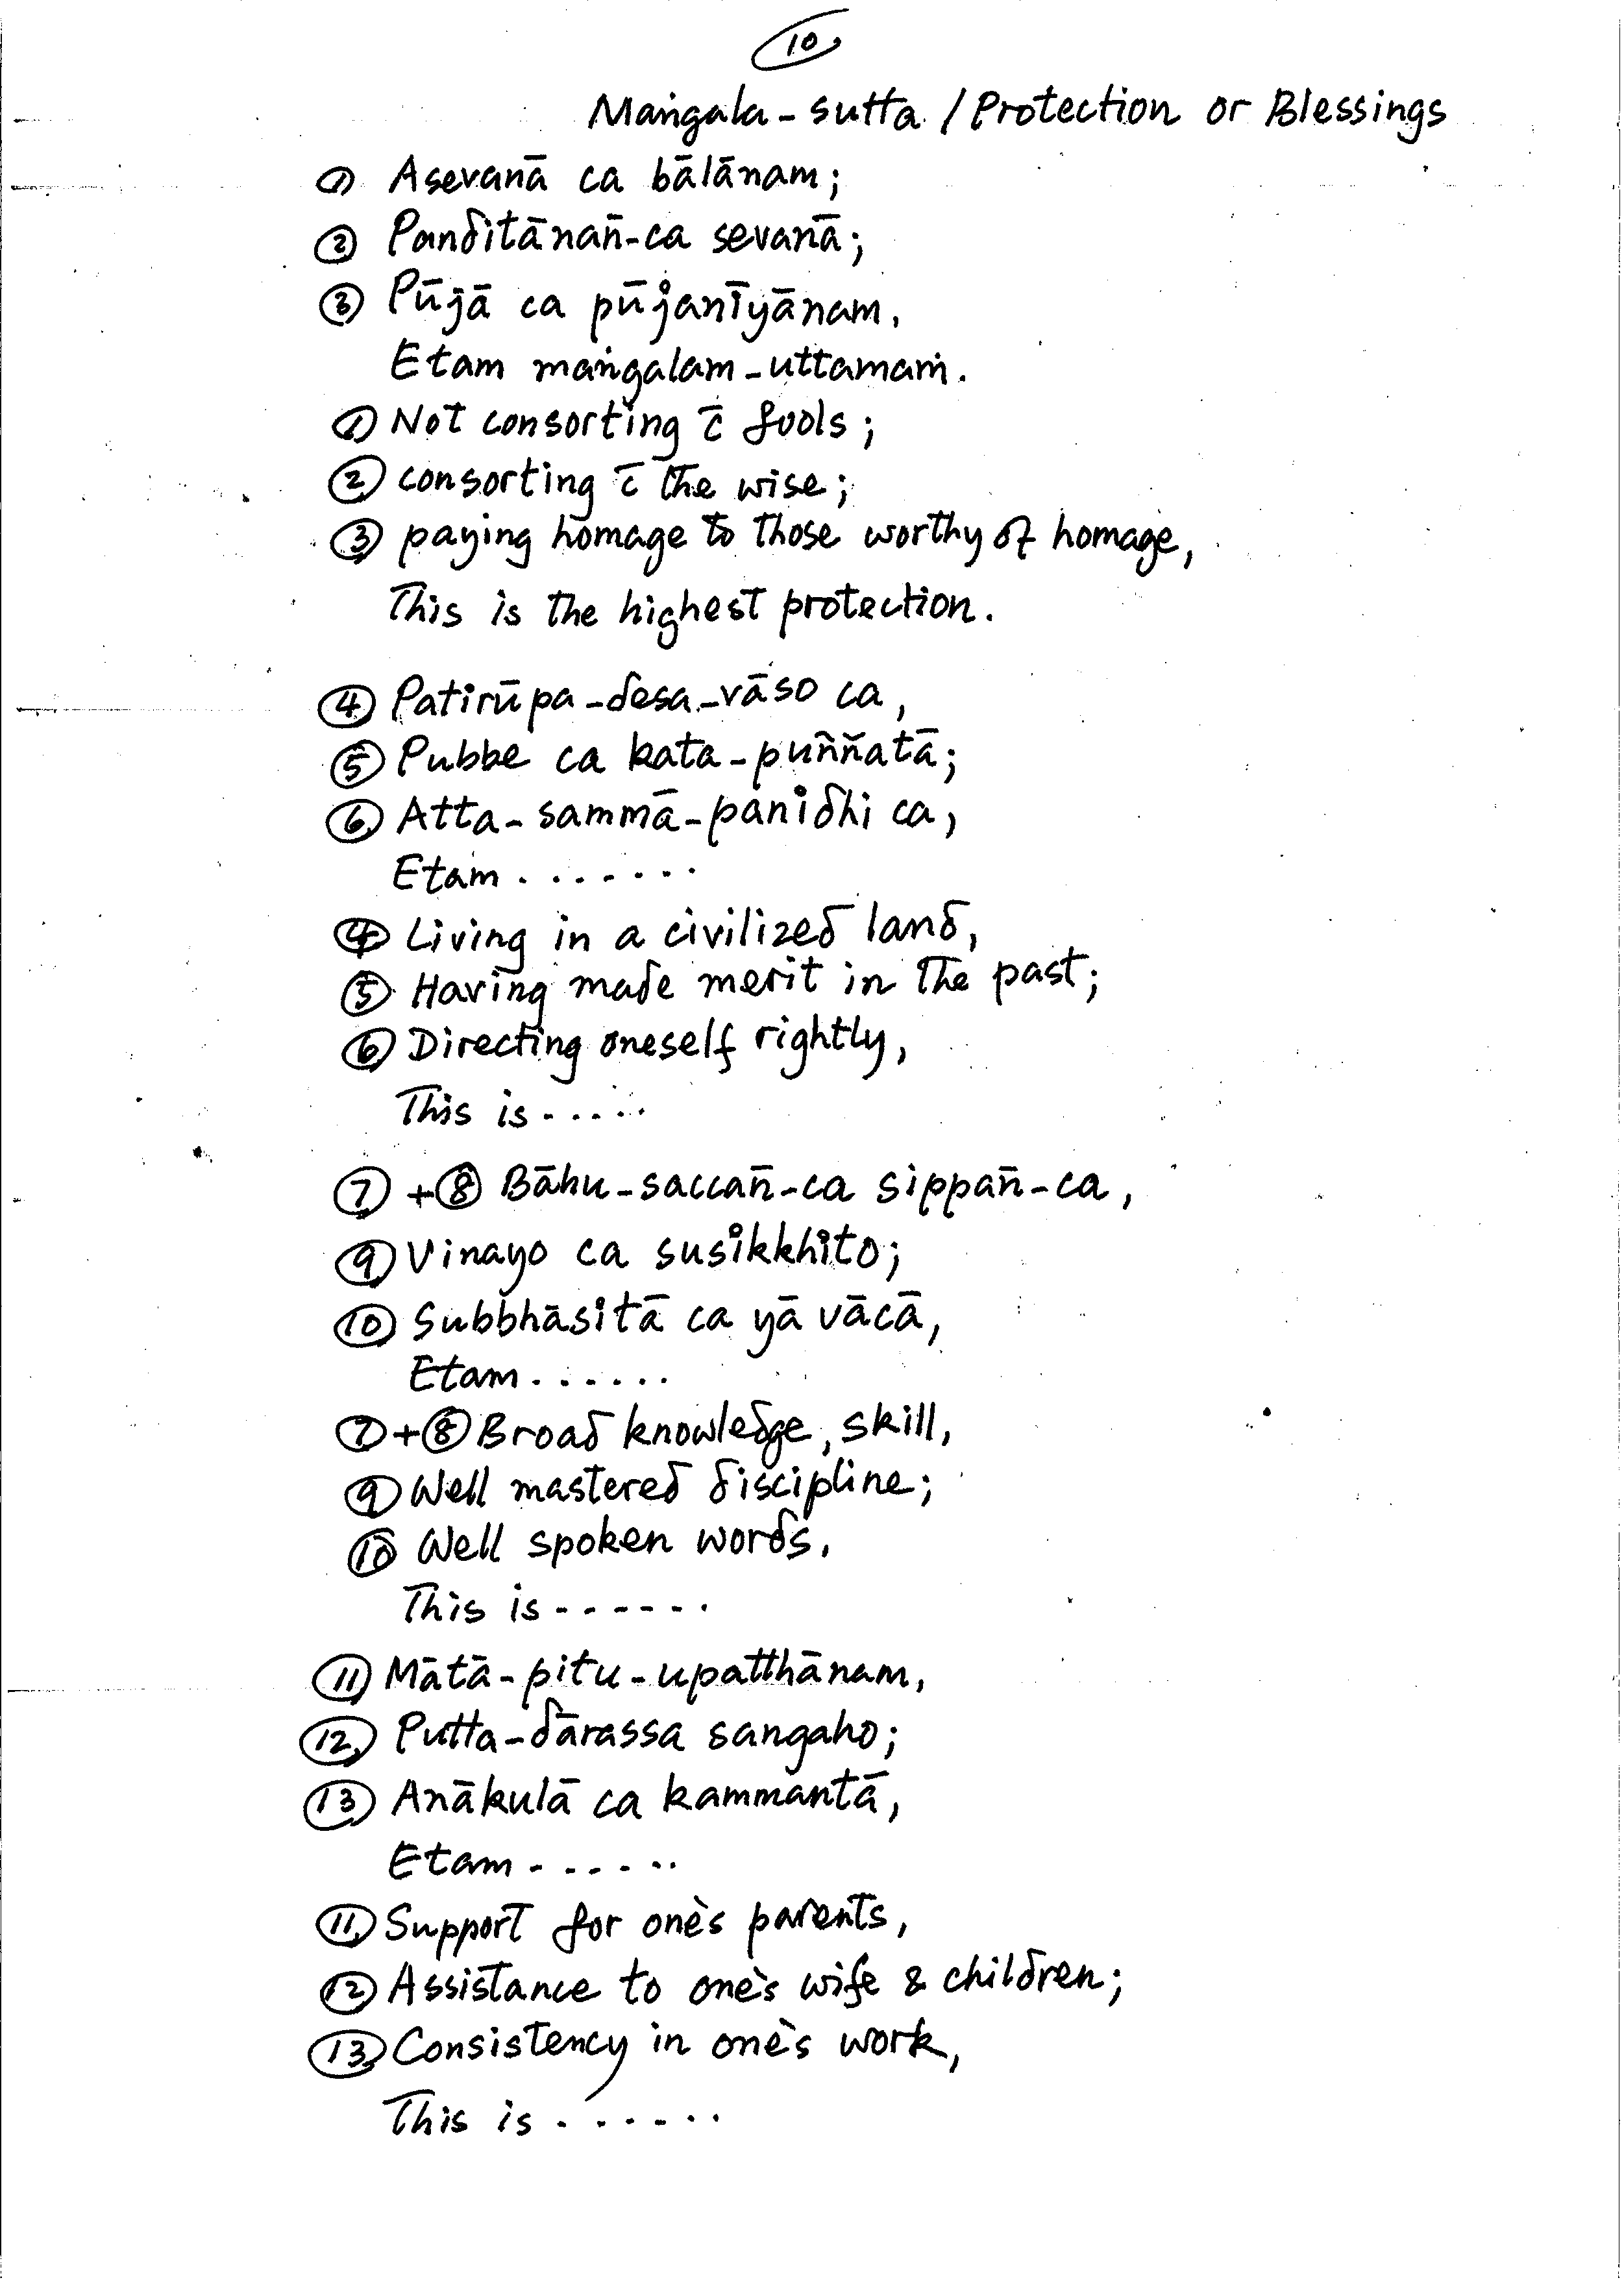 10
Maṅgala - sutta / Protection or Blessings
① Asevanā ca bālānam;
② Panditānañ-ca sevanā;
③ Pūjā ca pūjanīyānam,
Etam maṅgalam-uttamaṁ.
① Not consorting c̄ fools;
② consorting c̄ the wise;
③ paying homage to those worthy of homage,
This is the highest protection.
④ Patirūpa-desa-vāso ca,
⑤ Pubbe ca kata-puññatā;
⑥ Atta-sammā-panidhi ca,
Etam .......
④ Living in a civilized land,
⑤ Having made merit in the past;
⑥ Directing oneself rightly,
This is ......
⑦ + ⑧ Bāhu-saccañ-ca sippañ-ca,
⑨ Vinayo ca susikkhito;
⑩ Subbhāsitā ca yā vācā,
Etam ......
⑦ + ⑧ Broad knowledge, skill,
⑨ Well mastered discipline;
⑩ Well spoken words,
This is ------.
⑪ Mātā-pitu-upatthānam,
⑫ Putta-dārassa sangaho;
⑬ Anākulā ca kammantā,
Etam ------
⑪ Support for one's parents,
⑫ Assistance to one's wife & children;
⑬ Consistency in one's work,
This is ......